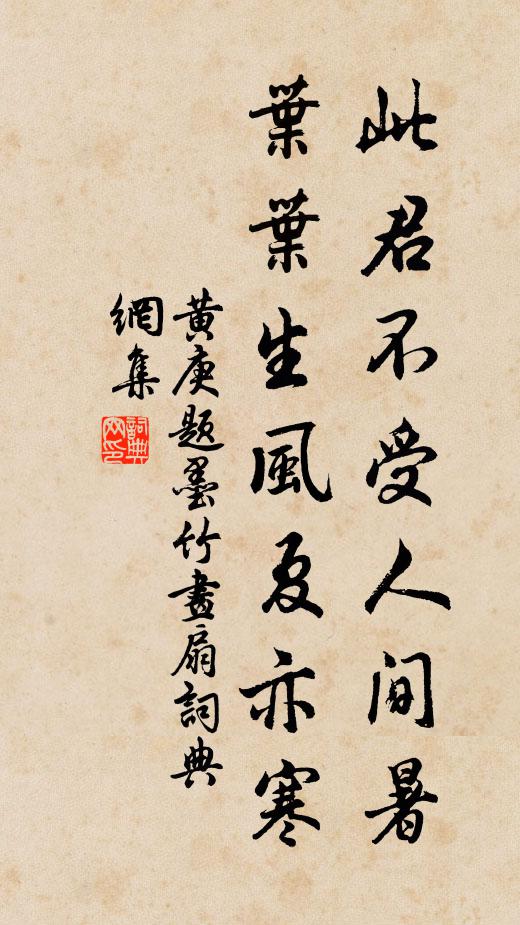 此君不受人間暑
葉葉生風夏亦寒
黃庚題墨竹畫扇詞典
網集
詞典網印